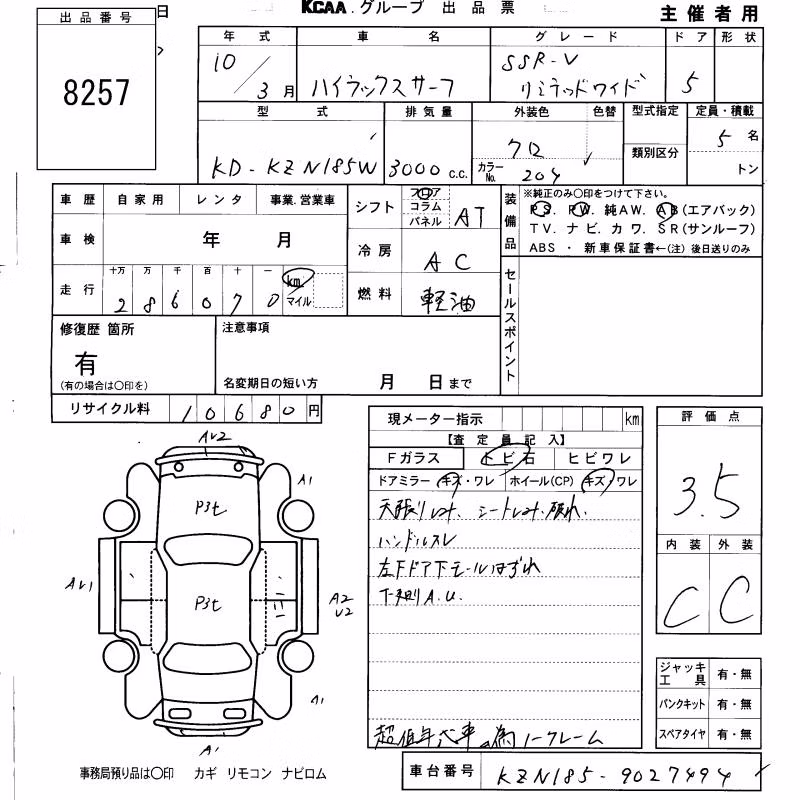 日 KCAA.グループ 出品票 主催者用
出品番号
8257
年式 車名 グレード ドア 形状
10/3月 ハイラックスサーフ SSR-V リミテッドワイド 5
型式 排気量 外装色 色替 型式指定 定員・積載
KD-KZN185W 3000 c.c. クロ 5名
カラーNo. 204 類別区分 トン
車歴 自家用 レンタ 事業.営業車
シフト フロア コラム パネル AT
装備品 ※純正のみ○印をつけて下さい。
PS. PW. 純AW. AB(エアバック)
TV. ナビ. カワ. SR(サンルーフ)
ABS ・ 新車保証書←(注) 後日送りのみ
車検 年 月
冷房 AC
走行 十万 万 千 百 十 一
286070 km. マイル
燃料 軽油
セールスポイント
修復歴 箇所
有
(有の場合は○印を)
注意事項
名変期日の短い方 月 日まで
リサイクル料 10680円
現メーター指示 km
【査定員記入】
Fガラス トビ石 ヒビワレ
ドアミラー キズ・ワレ ホイール(CP) キズ/ワレ
天張りしみ、シートしみ・破れ.
ハンドルスレ
左Fドア下モールはずれ
下廻りA.U.
超低年式車の為ノークレーム
評価点
3.5
内装 外装
C C
ジャッキ工具 有・無
パンクキット 有・無
スペアタイヤ 有・無
AU2
A1
P3t
AU1
P3t
A2
U2
A1
A1
事務局預り品は○印 カギ リモコン ナビロム
車台番号 KZN185-9027494